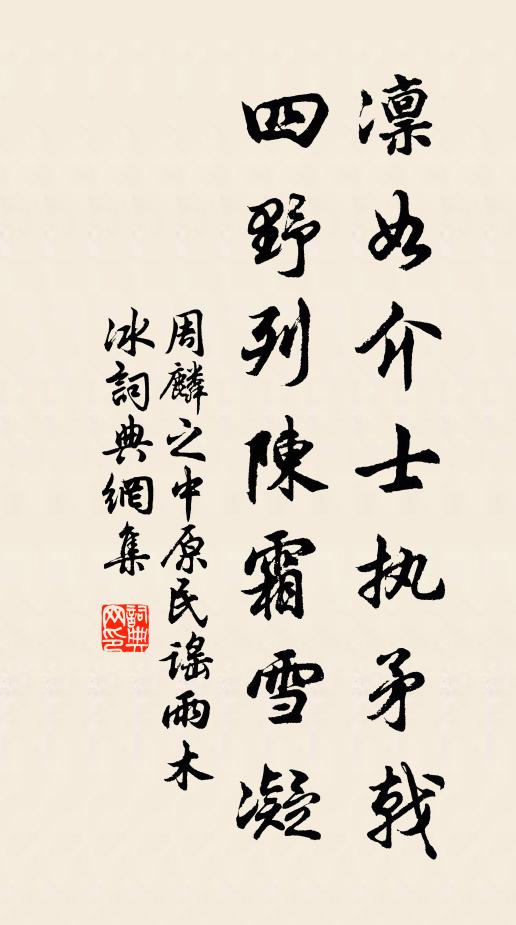 凛如介士执矛戟
四野列陳霜雪凝
周麟之中原民謠雨木
冰詞典網集
詞典网印